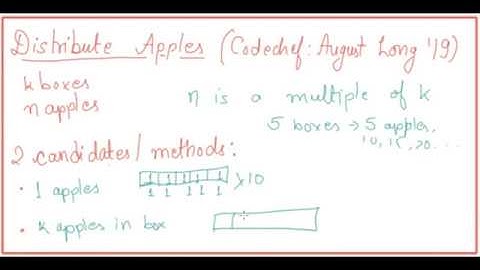 Distribute Apples (Codechef: August Long '19)
k boxes
n apples
n is a multiple of k
5 boxes → 5 apples,
10, 15, 20...
2 candidates/methods:
• 1 apples
1 1 1 1 1 1 x10
1 1 1 1 1
• k apples in box